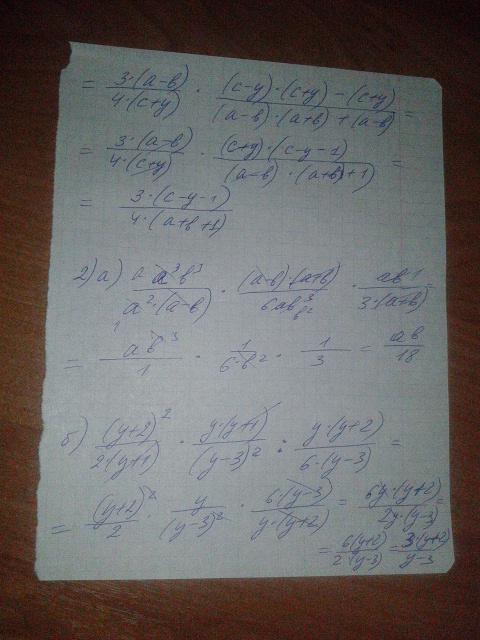 = 3·(a-b)/4·(c+y) · (c-y)·(c+y)-(c+y)/(a-b)·(a+b)+(a-b) =
= 3·(a-b)/4·(c+y) · (c+y)·(c-y-1)/(a-b)·(a+b+1) =
= 3·(c-y-1)/4·(a+b+1)
2) а) a³b³/a²·(a-b) · (a-b)·(a+b)/6ab³ · ab/3·(a+b) =
= ab³/1 · 1/6·b² · 1/3 = ab/18
б) (y+2)²/2·(y+1) · y·(y+1)/(y-3)² : y·(y+2)/6·(y-3) =
= (y+2)²/2 · y/(y-3)² · 6·(y-3)/y·(y+2) = 6y·(y+2)/2y·(y-3) =
= 6(y+2)/2·(y-3) = 3·(y+2)/y-3